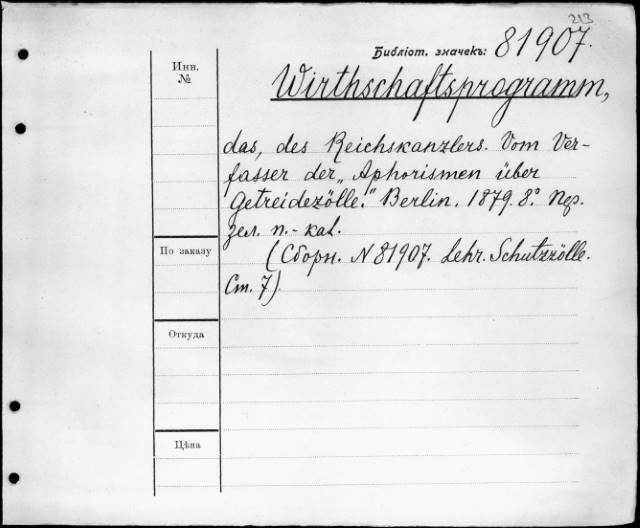 213
Библіот. значекъ: 81907.
Инв.
№
Wirthschaftsprogramm,
das, des Reichskanzlers. Vom Ver-
fasser der „Aphorismen über
Getreidezölle." Berlin. 1879. 8° Пер.
зел. п.-кал.
По заказу
(Сборн. N 81907. Lehr. Schutzzölle.
Ст. 7)
Откуда
Цѣна